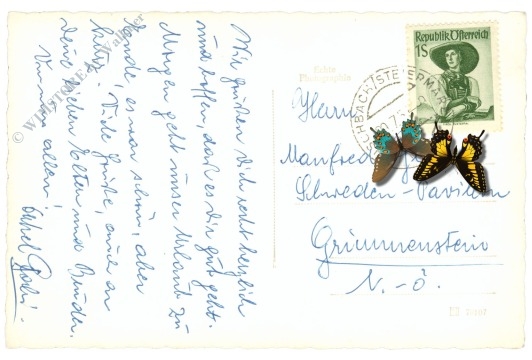 Wir grüßen Dich recht herzlich
und hoffen, daß es Dir gut geht.
Morgen geht unser Urlaub zu
Ende, es war schön, aber
kalt. Viele Grüße, auch an
Deine lieben Eltern und Brüder.
Von uns allen!
© WINSTORE
Echte
Photographie
Republik Österreich
1S
STEIERMARK
Herrn
Manfred
Schweden-Pavillon
Grimmenstein
N.-Ö.